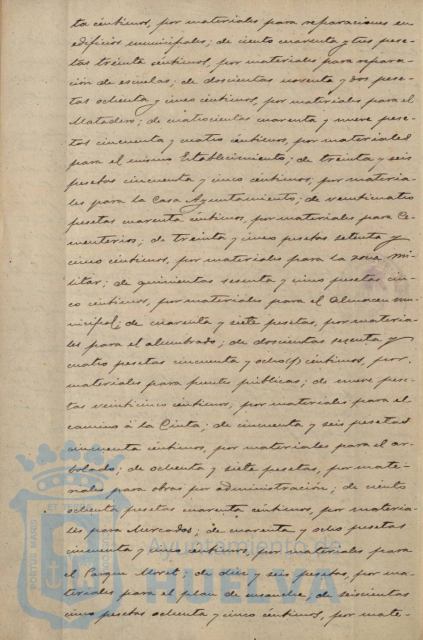 ta céntimos, por materiales para reparaciones en
edificios municipales; de ciento cuarenta y tres pese-
tas treinta céntimos, por materiales para repara-
ción de escuelas; de doscientas noventa y dos pese-
tas ochenta y cinco céntimos, por materiales para el
Matadero; de cuatrocientas cuarenta y nueve pese-
tas cincuenta y cuatro céntimos, por materiales
para el mismo Establecimiento; de treinta y seis
pesetas cincuenta y cinco céntimos, por materia-
les para la Casa Ayuntamiento; de veinticuatro
pesetas cuarenta céntimos, por materiales para Ce-
menterios; de treinta y cinco pesetas setenta y
cinco céntimos, por materiales para la zona mi-
litar; de quinientas sesenta y cinco pesetas cin-
co céntimos, por materiales para el Almacen mu-
nicipal; de cuarenta y siete pesetas, por materia-
les para el alumbrado; de doscientas sesenta y
cuatro pesetas cincuenta y ocho céntimos, por
materiales para fuentes públicas; de nueve pese-
tas veinticinco céntimos, por materiales para el
camino á la Cinta; de cincuenta y seis pesetas
cincuenta céntimos, por materiales para el ar-
bolado; de ochenta y siete pesetas, por mate-
riales para obras por administración; de ciento
ochenta pesetas cuarenta céntimos, por materia-
les para Mercados; de cuarenta y ocho pesetas
cincuenta y cinco céntimos, por materiales para
el Parque Moret; de diez y seis pesetas, por ma-
teriales para el plan de ensanche; de seiscientas
cinco pesetas ochenta y cinco céntimos, por mate-
PORTUS MARIS
Ayuntamiento de
HUELVA